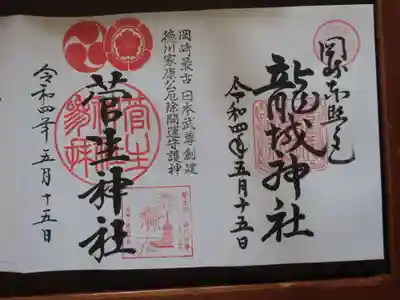 岡崎東照宮
龍城神社
令和四年五月十五日
岡崎最古 日本武尊創建
徳川家康公厄除開運守護神
菅生神社
令和四年 五月十五日